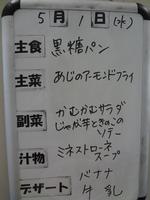 5月1日(水)
主食 黒糖パン
主菜 あじのアーモンドフライ
副菜 かむかむサラダ
じゃが芋ときのこの
ソテー
汁物 ミネストローネ
スープ
デザート バナナ
牛乳